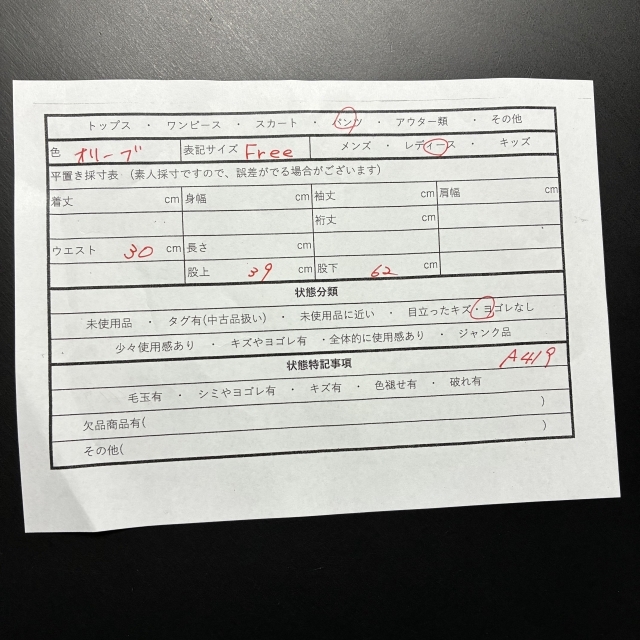 トップス ・ ワンピース ・ スカート ・ パンツ ・ アウター類 ・ その他
色 オリーブ 表記サイズ Free メンズ ・ レディース ・ キッズ
平置き採寸表 (素人採寸ですので、誤差がでる場合がございます)
着丈 cm 身幅 cm 袖丈 cm 肩幅 cm
裄丈 cm
ウエスト 30 cm 長さ cm
股上 39 cm 股下 62 cm
状態分類
未使用品 ・ タグ有(中古品扱い) ・ 未使用品に近い ・ 目立ったキズ・ヨゴレなし
少々使用感あり ・ キズやヨゴレ有 ・全体的に使用感あり ・ ジャンク品
状態特記事項 A419
毛玉有 ・ シミやヨゴレ有 ・ キズ有 ・ 色褪せ有 ・ 破れ有
欠品商品有( )
その他( )